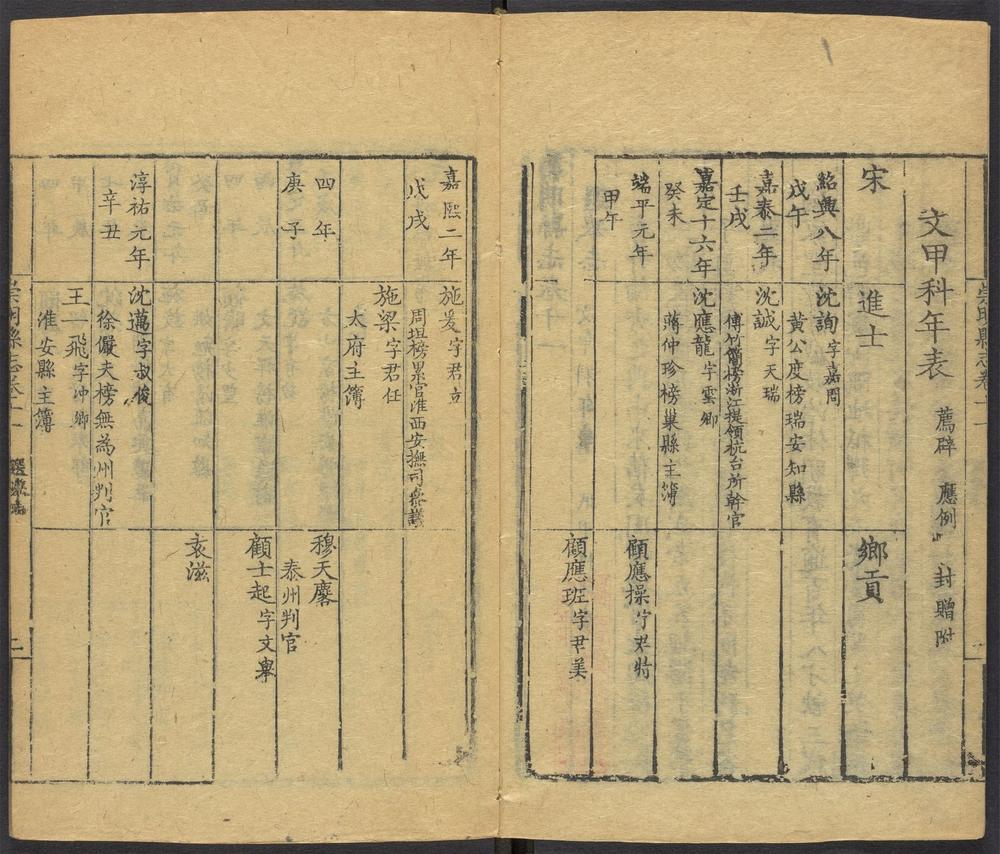 文甲科年表 薦辟 應例 封贈附
宋 進士 鄉貢
紹興八年 沈詢字嘉問
戊午 黃公度榜瑞安知縣
嘉泰二年 沈誠字天瑞
壬戌 傅竹簡榜浙江提領杭台所幹官
嘉定十六年 沈應龍字雲卿
癸未 蔣仲珍榜巢縣主簿
端平元年 顧應操字
甲午
顧應班字尹美
嘉熙二年 施爰字君立
戊戌 周坦榜累官淮西安撫司參議
施梁字君任
太府主簿
四年 穆天麐
庚子 泰州判官
顧士起字文舉
袁滋
淳祐元年 沈邁字叔俊
辛丑 徐儼夫榜無為州判官
王飛字沖卿
淮安縣主簿
縣志卷十一 選舉 二